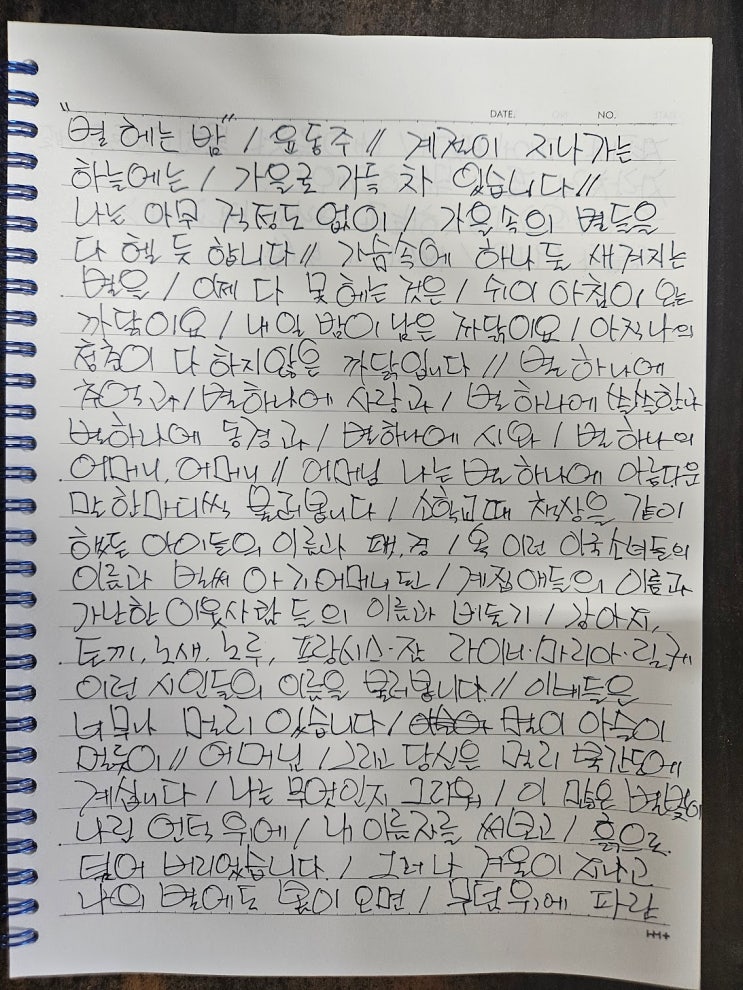 DATE. NO.
"별 헤는 밤" / 윤동주 // 계절이 지나가는
하늘에는 / 가을로 가득 차 있습니다 //
나는 아무 걱정도 없이 / 가을 속의 별들을
다 헬 듯 합니다 // 가슴속에 하나 둘 새겨지는
별을 / 이제 다 못 헤는 것은 / 쉬이 아침이 오는
까닭이요 / 내일 밤이 남은 까닭이요 / 아직 나의
청춘이 다 하지않은 까닭입니다 // 별 하나에
추억과 / 별하나에 사랑과 / 별 하나에 쓸쓸함과
별하나에 동경과 / 별하나에 시와 / 별 하나의
어머니, 어머니 // 어머님 나는 별 하나에 아름다운
말 한마디씩 불러봅니다 / 소학교때 책상을 같이
했던 아이들의 이름과 패, 경 / 옥 이런 이국소녀들의
이름과 벌써 아기 어머니 된 / 계집애들의 이름과
가난한 이웃사람들의 이름과 비둘기 / 강아지,
토끼, 노새, 노루, 프랑시스·잠 라이너·마리아·릴케
이런 시인들의 이름을 불러봅니다. // 이네들은
너무나 멀리 있습니다 / 별이 아슬이
멀듯이 // 어머님 / 그리고 당신은 멀리 북간도에
계십니다 / 나는 무엇인지 그리워 / 이 많은 별빛이
나린 언덕 위에 / 내 이름자를 써보고 / 흙으로.
덮어 버리었습니다. / 그러나 겨울이 지나고
나의 별에도 봄이 오면 / 무덤 위에 파란